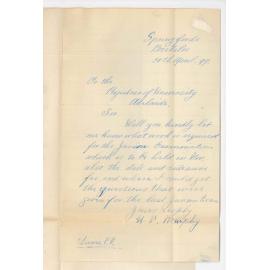 Springfields
Booleroo
20th April 99
To the
Registrar of University
Adelaide.
Sir
Will you kindly let
me know what work is required
for the Junior Examination
which is to be held in Nov.
also the date and entrance
fee, and where I could get
the questions that were
given for the last Junior Exam
Yours truly
Murphy